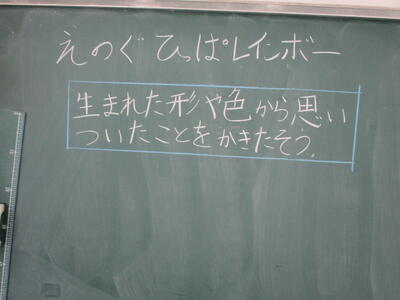 えのぐひっぱレインボー
生まれた形や色から思い
ついたことをかきたそう。